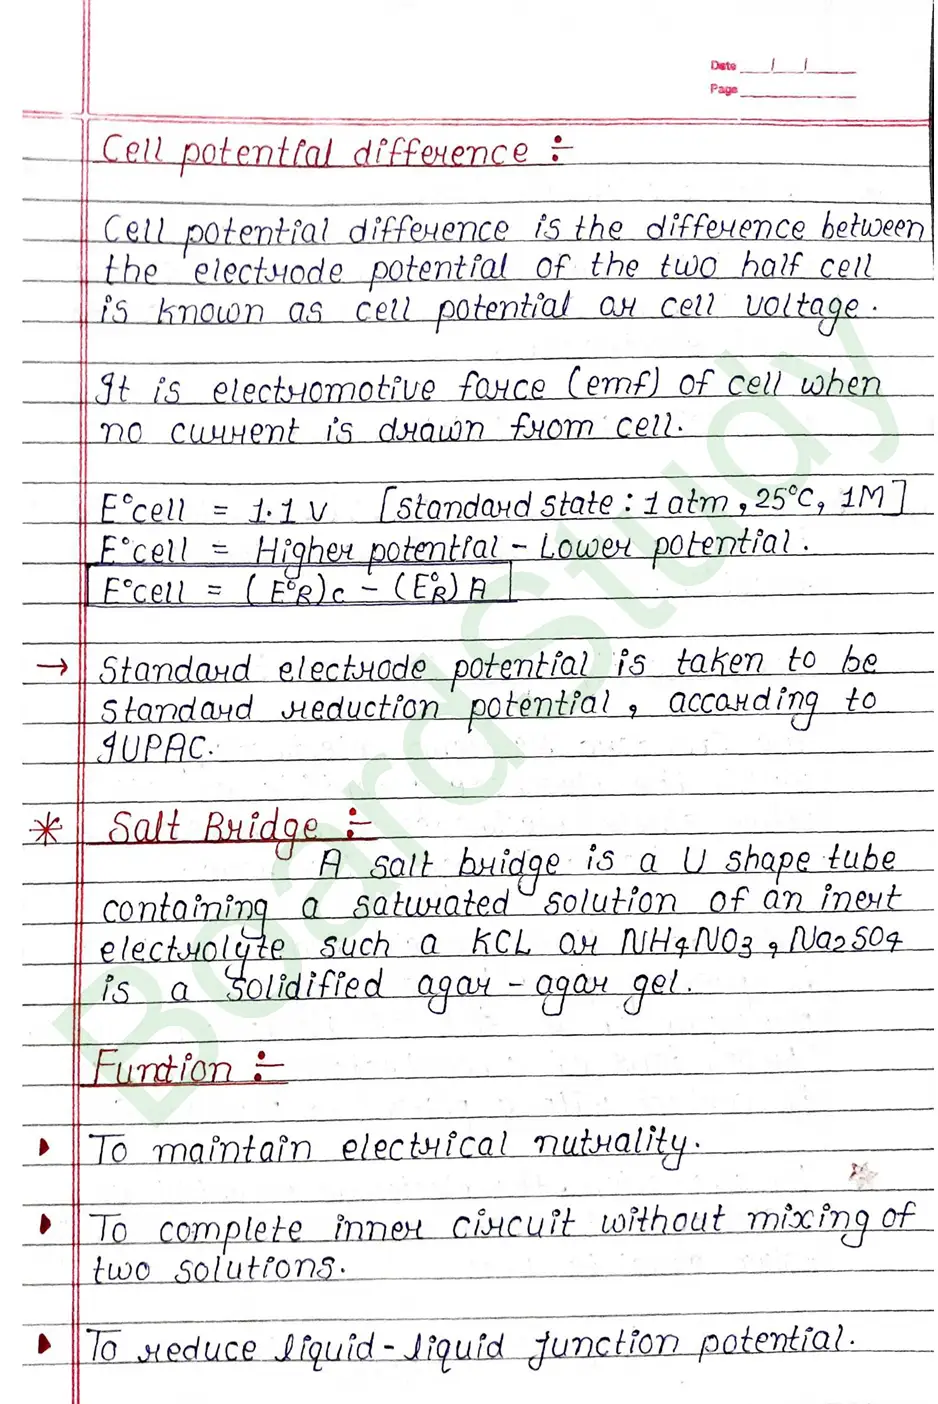 Date / /
Page
Cell potential difference :-
Cell potential difference is the difference between
the electrode potential of the two half cell
is known as cell potential or cell voltage.
It is electromotive force (emf) of cell when
no current is drawn from cell.
E°cell = 1.1 V [Standard state : 1 atm, 25°C, 1M]
E°cell = Higher potential - Lower potential.
E°cell = (E°R)c - (E°R)A
→ Standard electrode potential is taken to be
standard reduction potential, according to
IUPAC.
* Salt Bridge :-
A salt bridge is a U shape tube
containing a saturated solution of an inert
electrolyte such a KCL or NH4NO3, Na2SO4
is a solidified agar-agar gel.
Function :-
To maintain electrical nutrality.
To complete inner circuit without mixing of
two solutions.
To reduce liquid-liquid junction potential.
BoardStudy